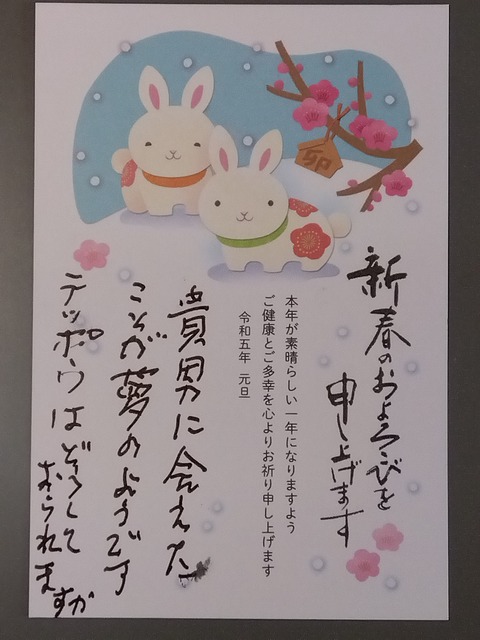 卯
新春のおよろこびを
申し上げます
本年が素晴らしい一年になりますよう
ご健康とご多幸を心よりお祈り申し上げます
令和五年 元旦
貴男に会えた
ことが夢のようです
テッポウはどうして
おられますか